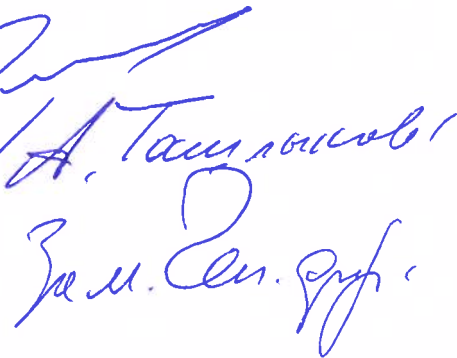 А. Ташлыков
Зам. Ген. дир.